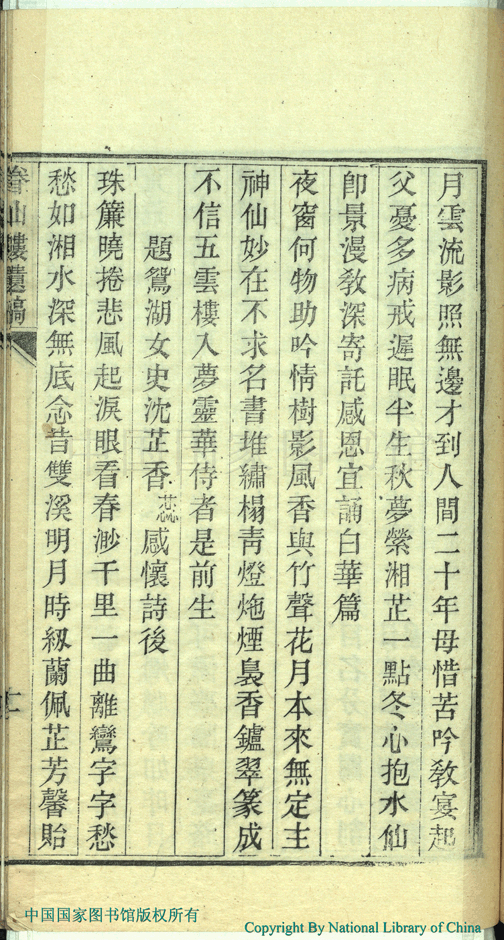 月雲流影照無邊才到人間二十年母惜苦吟敎宴起
父憂多病戒遲眠半生秋夢縈湘芷一點冬心抱水仙
卽景漫敎深寄託感恩宜誦白華篇
夜窗何物助吟情樹影風香與竹聲花月本來無定主
神仙妙在不求名書堆繡榻靑燈灺煙裊香鑪翠篆成
不信五雲樓入夢靈華侍者是前生
題鴛湖女史沈芷香蕊感懷詩後
珠簾曉捲悲風起淚眼看春渺千里一曲離鸞字字愁
愁如湘水深無底念昔雙溪明月時紉蘭佩芷芳馨貽
眷山樓遺稿
中国国家图书馆版权所有
Copyright By National Library of China